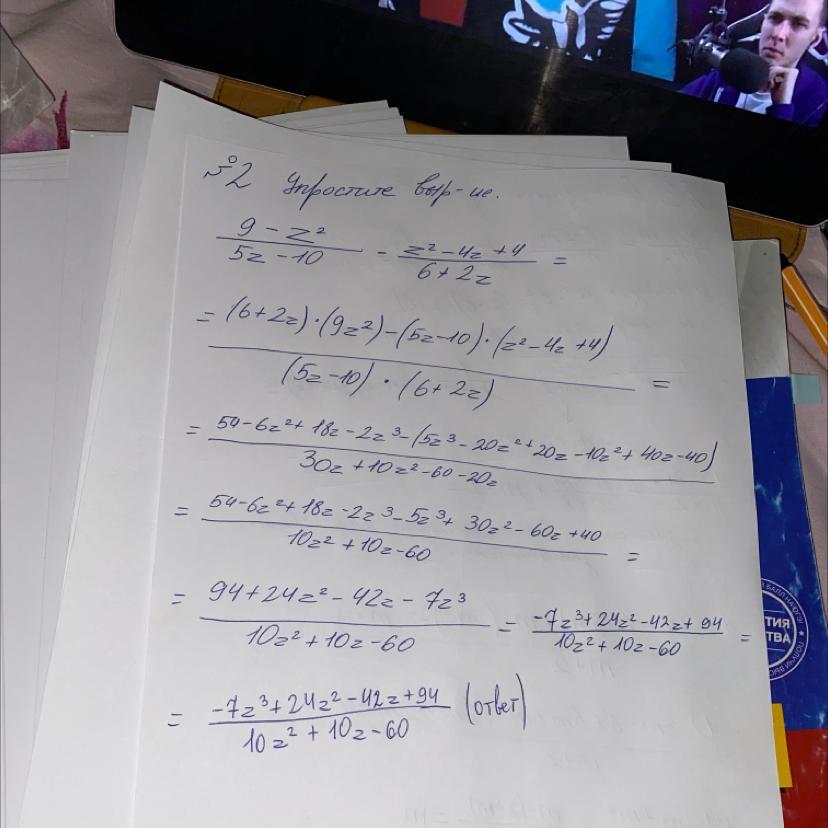 №2 Упростите выр-ие.
9 - z² / 5z - 10 - z² - 4z + 4 / 6 + 2z =
= (6+2z)·(9z²)-(5z-10)·(z²-4z+4) / (5z-10)·(6+2z) =
= 54-6z²+18z-2z³-(5z³-20z²+20z-10z²+40z-40) / 30z+10z²-60-20z
= 54-6z²+18z-2z³-5z³+30z²-60z+40 / 10z²+10z-60 =
= 94+24z²-42z-7z³ / 10z²+10z-60 = -7z³+24z²-42z+94 / 10z²+10z-60 =
= -7z³+24z²-42z+94 / 10z²+10z-60 (ответ)